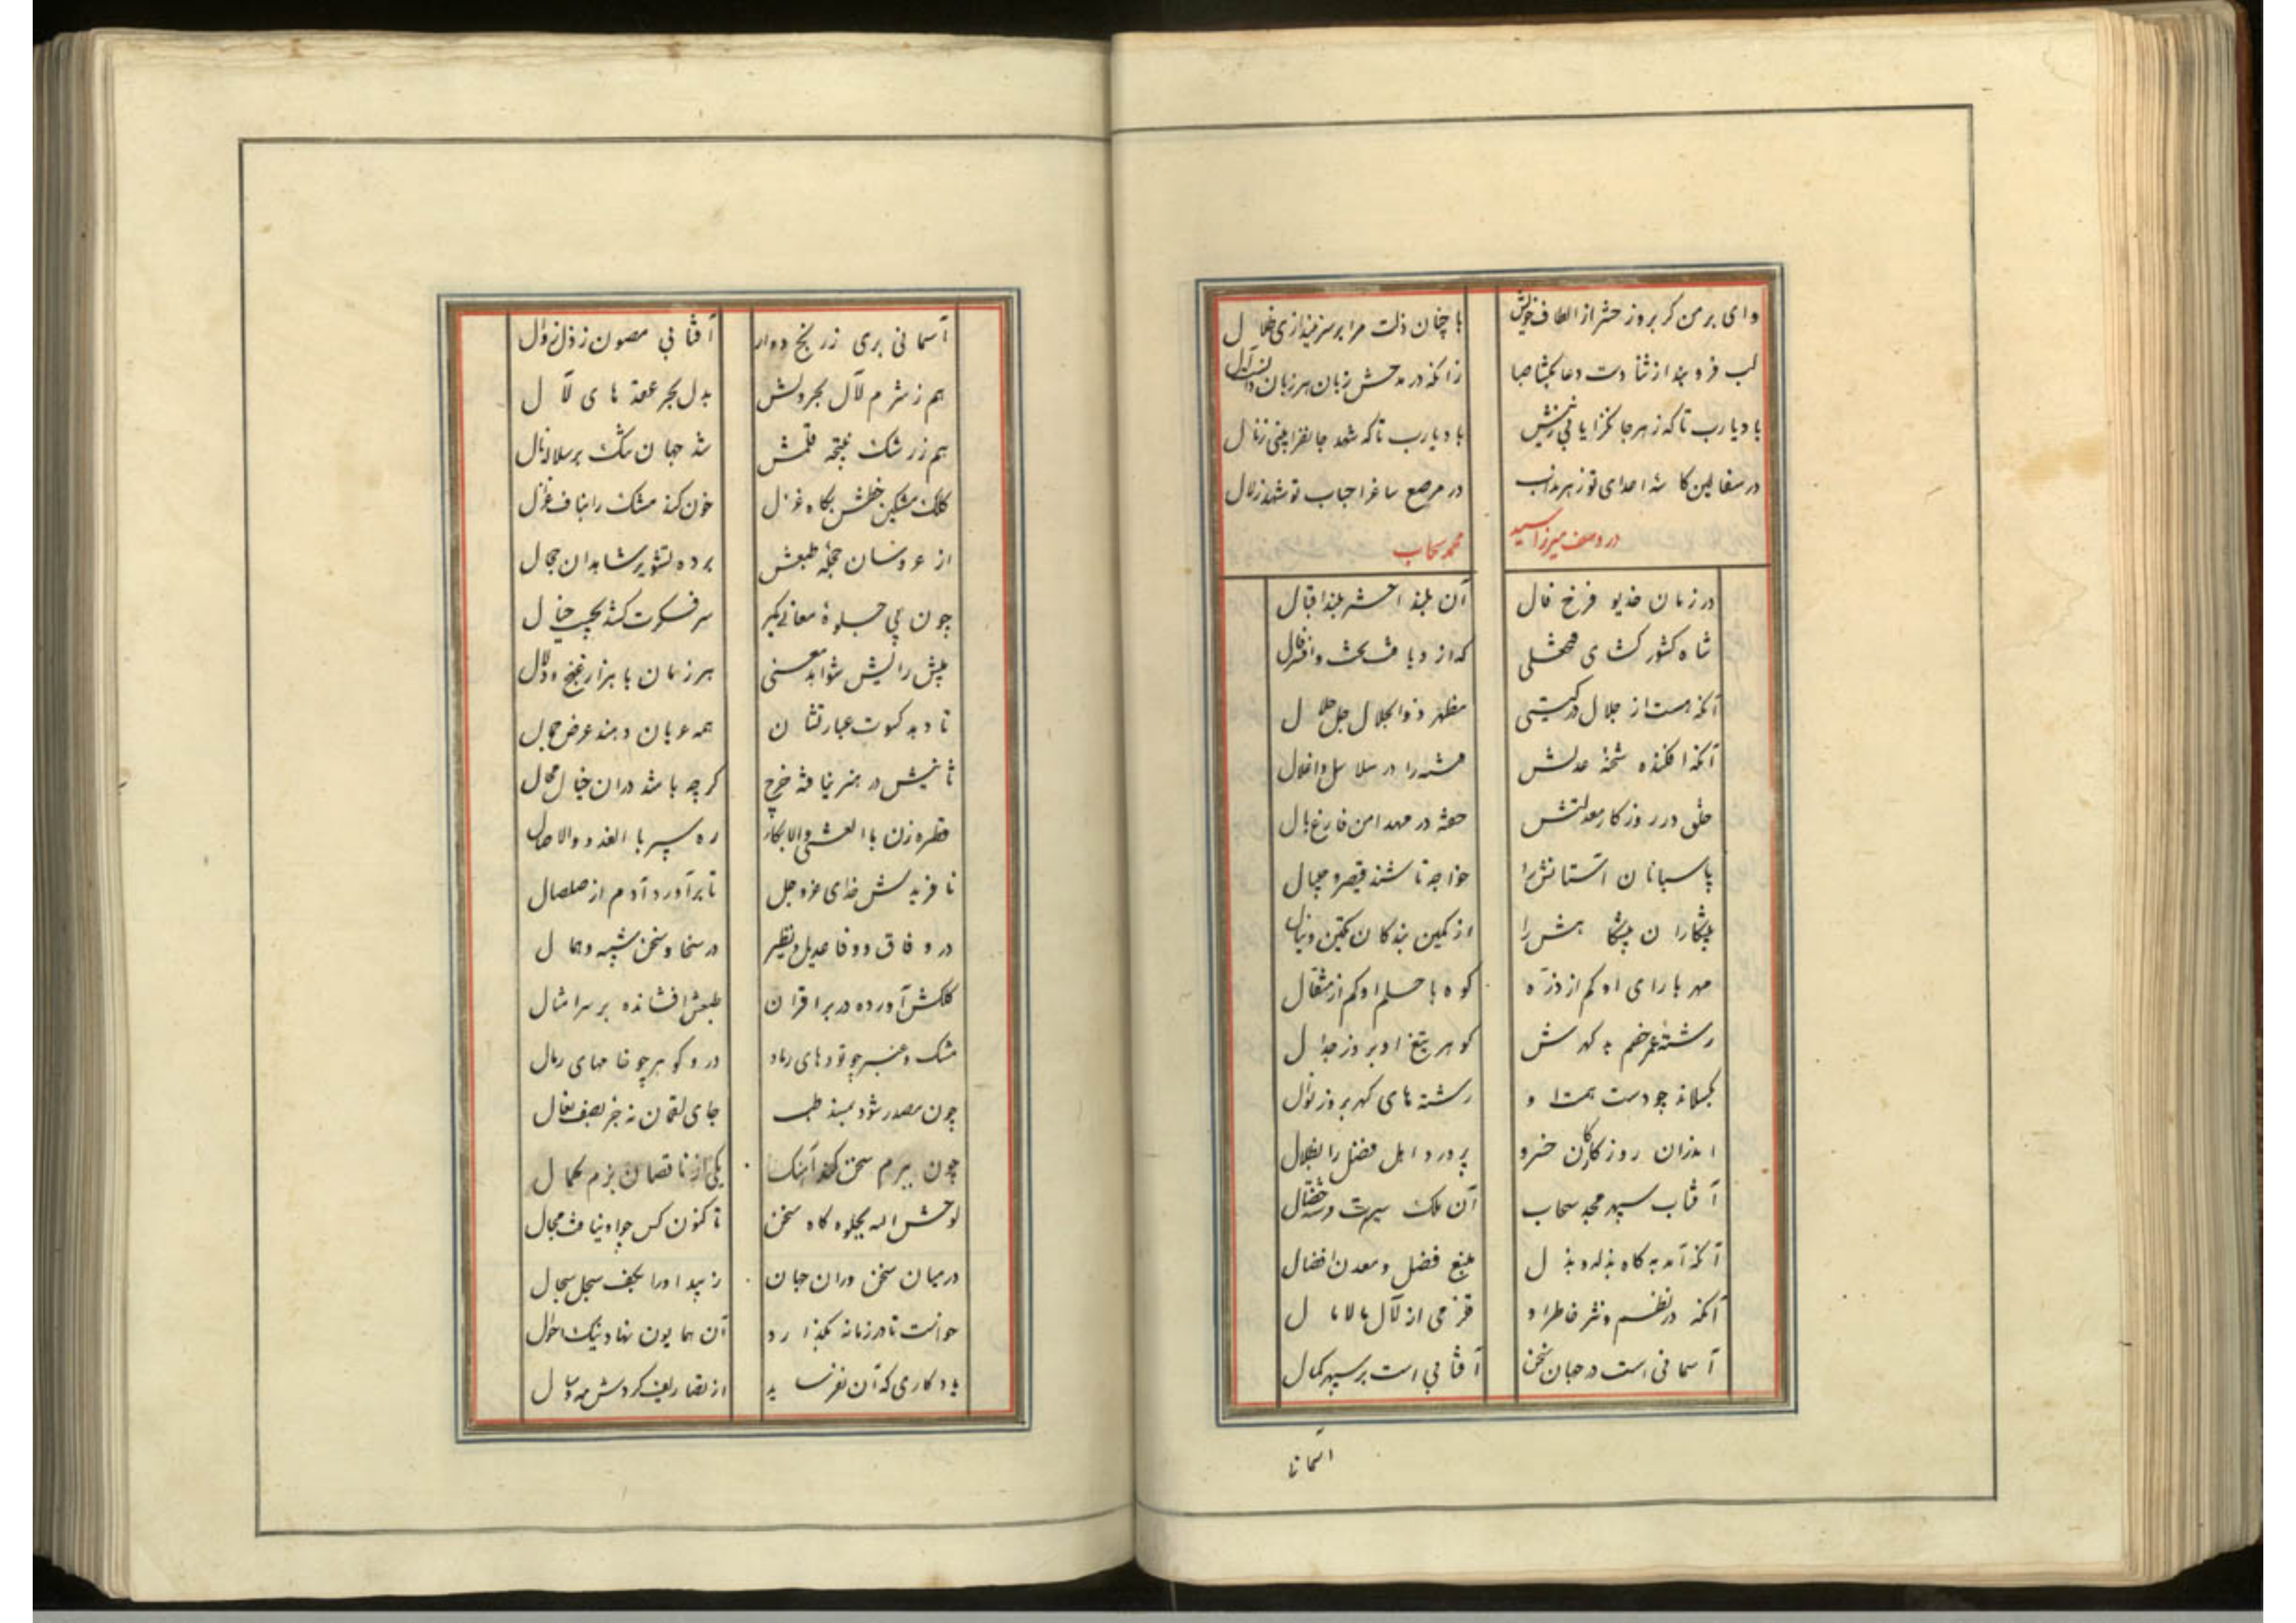 وای بر من کر بروز حشر از الطاف خویش با چنان ذلت مرا بر سر نیندازی ظلال
لب فرو بند از ثنا دست دعا بکشا صبا زانکه در مدحش زبان هر زبان دانست لال
باد یارب تا که زهر جانکزا یابی ز نیش باد یارب تا که شهد جانفزا بینی ز نال
در سفالین کاسهٔ اعدای تو زهر مذاب در مرصع ساغر احباب تو شهد زلال
در وصف میرزا سید محمد سحاب
در زمان خدیو فرخ فال آن بلند اختر بلند اقبال
شاه کشور کشای فتحعلی که ازو یافت بخت و افسر فال
آنکه هست از جلال در کیتی مظهر ذوالجلال جل جلال
آنکه افکنده شحنهٔ عدلش فتنه را در سلاسل و اغلال
خلق در روزکار معدلتش خفته در مهد امن فارغ بال
پاسبانان آستانش را خواجه تاشند قیصر و چیپال
پیشکاران پیشکاهش را از کمین بندکان تکین و ینال
مهر با رای او کم از ذره کوه با حلم او کم از مثقال
رشتهٔ عمر خصم بد کهرش کوهر تیغ او بروز جدال
بکسلاند چو دست همت او رشته های کهر بروز نوال
اندران روزکار کان خسرو پرورد اهل فضل را بظلال
آفتاب سپهر مجد سحاب آن ملک سیرت فرشته خصال
آنکه آمد به کاه بذله و بذل منبع فضل و معدن افضال
آنکه در نظم و نثر خاطر او قلزمی از لآل مالامال
آسمانی است در جهان سخن آفتابی است بر سپهر کمال
آسمانی
آسمانی بری ز رنج دوار آفتابی مصون ز ذل زوال
هم ز شرم لآل بحر دلش بدل بحر عقدهای لآل
هم ز رشک نتیجهٔ قلمش شد جهان تنک بر سلالهٔ نال
کلک مشکین خطش بکاه غزل خون کند مشک را بناف غزال
از عروسان حجلهٔ طبعش برده تشویر شاهدان حجال
چون پی جلوهٔ معانی بکر سر فکرت کشد بجیب خیال
پیش رایش شواهد معنی هر زمان با هزار غنج و دلال
تا دهد کسوت عبارتشان همه عریان دهند عرض جمال
ثانیش در هنر نیافته چرخ کر چه باشد در ان خیال محال
قطره زن با العشی و الابکار ره سپر با الغدو و الاصال
نافریدش خدای عز و جل تا برآورد آدم از صلصال
در وفاق و وفا عدیل و نظیر در سخا و سخن شبیه و همال
کلکش آورده در بر اقران طبعش افشانده بر سر امثال
مشک و عنبر چو تودهای رماد در و کوهر چو خامهای رمال
چون مصدر شود بمسند طب جای لقمان نه جز بصف نعال
چون ببزم سخن کند آهنک یکی از ناقصان بزم کمال
لوحش الله بجلوه کاه سخن تا کنون کس چو او نیافت مجال
در میان سخن وران جهان زیبد او را بکف سجل سجال
خواست تا در زمانه بکذارد آن همایون نهاد نیک احوال
یادکاری که آن نفرساید از تصاریف کردش مه و سال